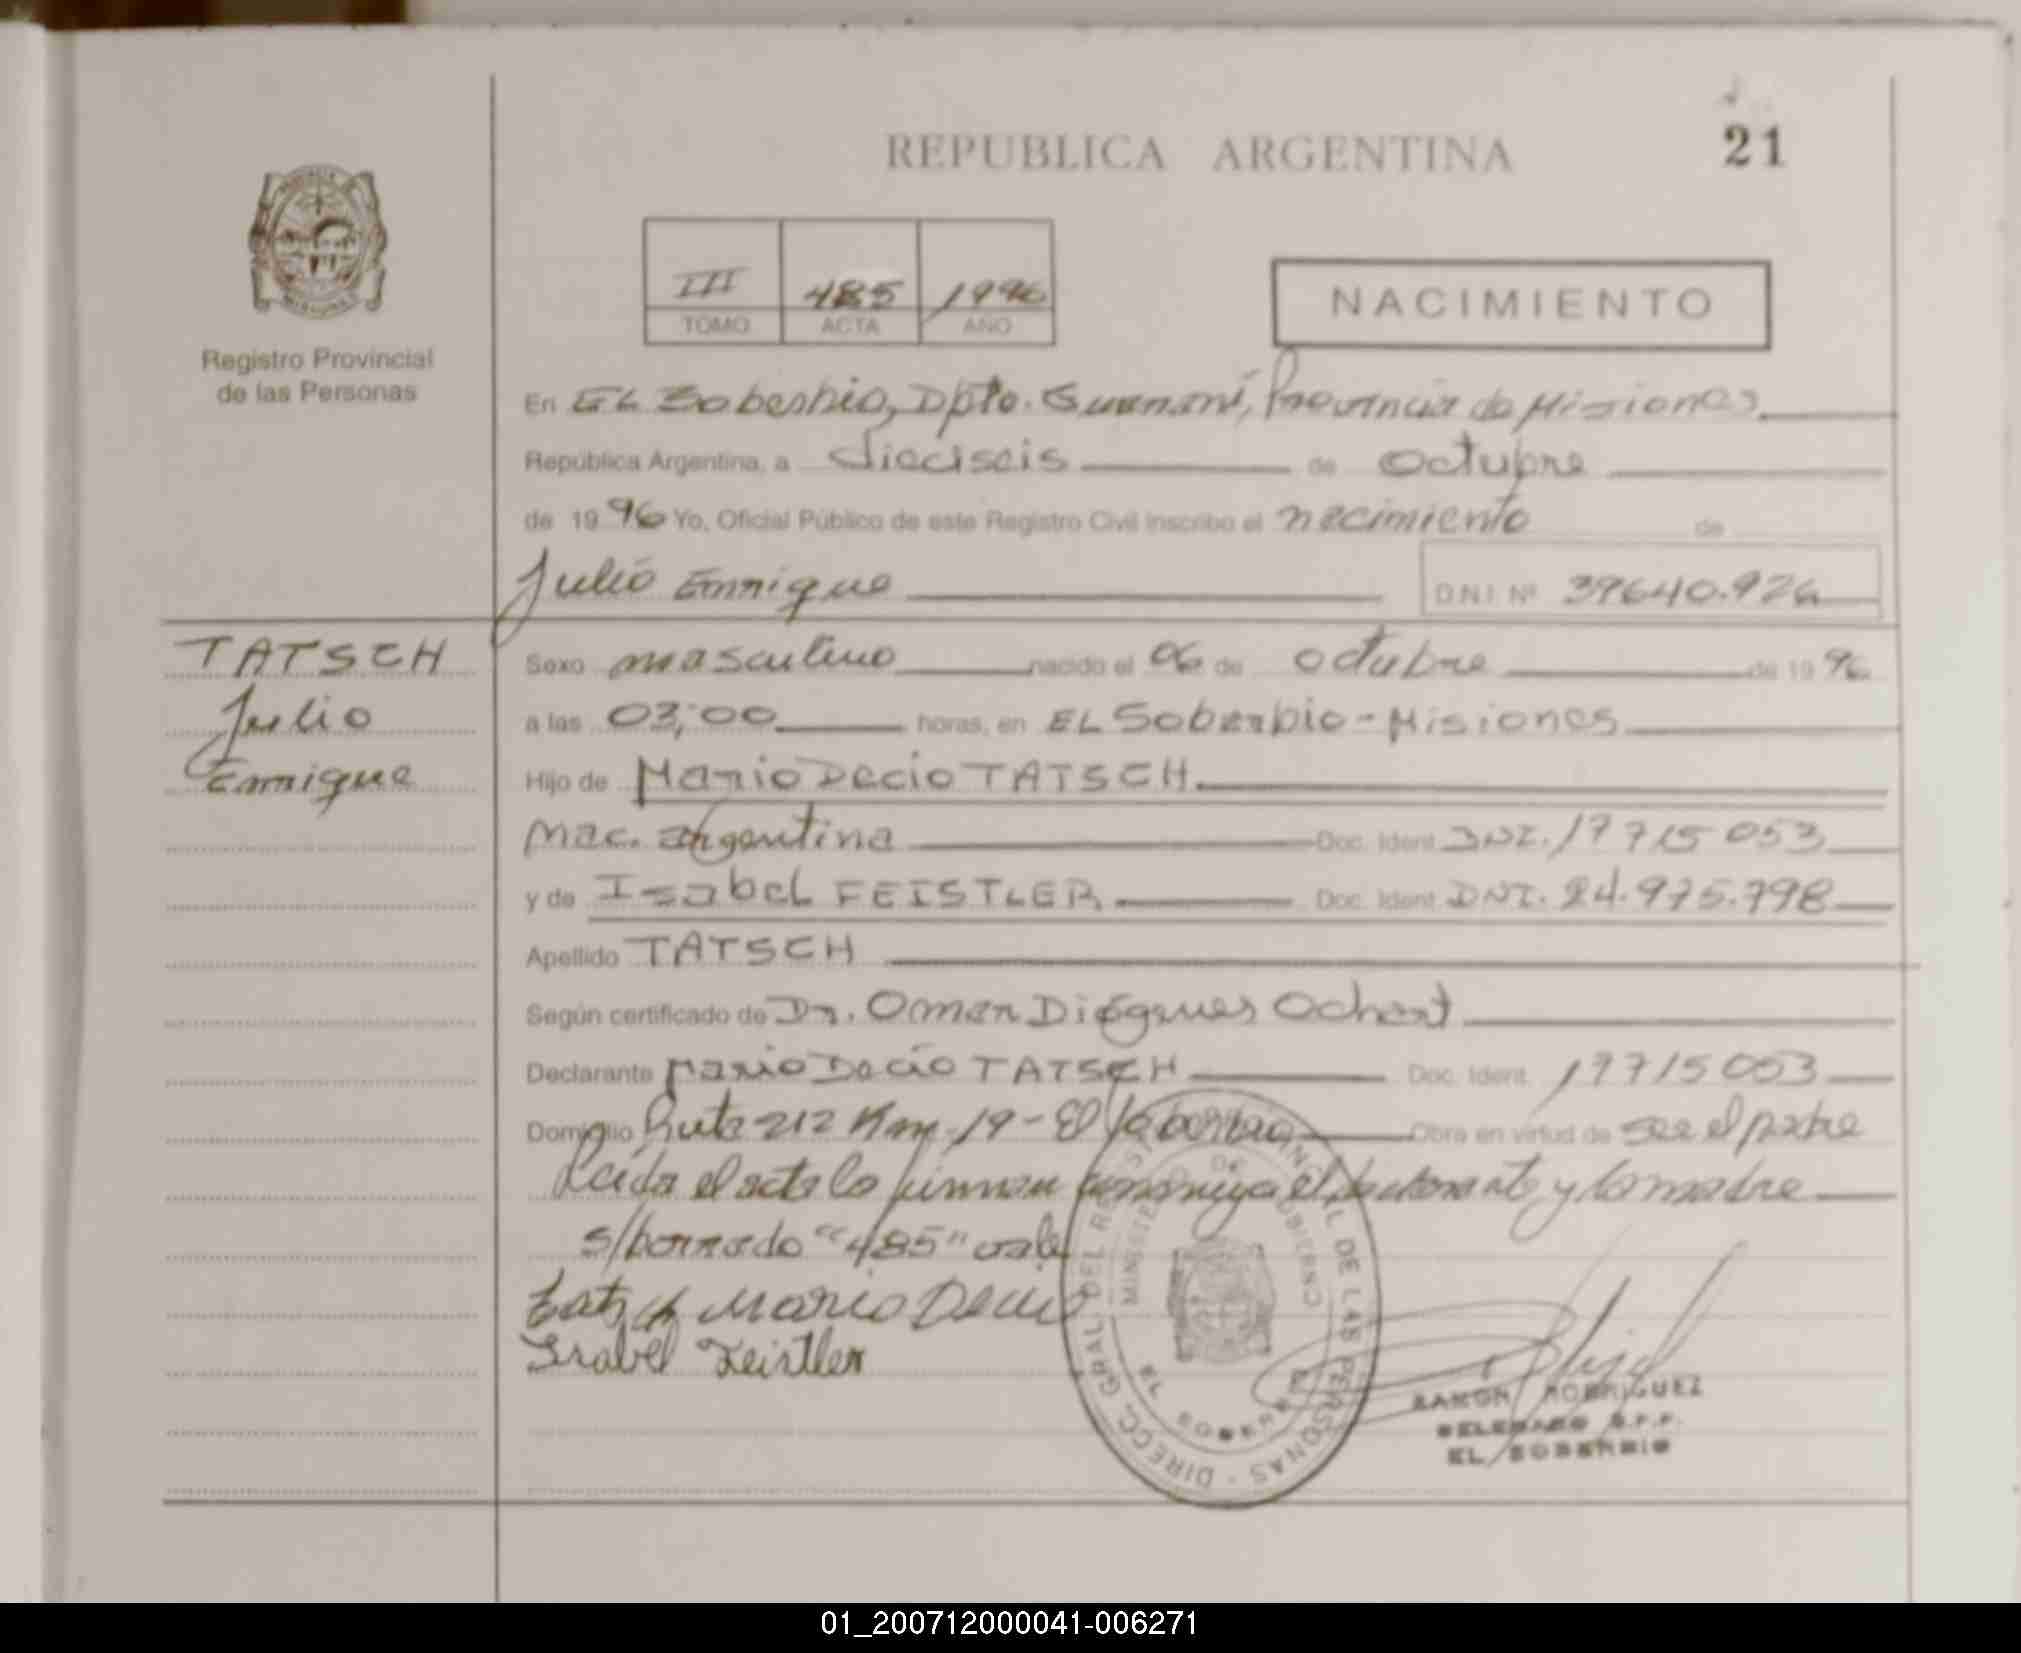 REPUBLICA ARGENTINA
21
III 485 1996
TOMO ACTA AÑO
NACIMIENTO
Registro Provincial
de las Personas
En EL Soberbio, Dpto. Guaraní, Provincia de Misiones
República Argentina, a dieciseis de octubre
de 1996 Yo, Oficial Público de este Registro Civil inscribo el nacimiento de
Julio Enrique D.N.I. Nº 39640.926
TATSCH
Julio
Enrique
Sexo masculino nacido el 06 de octubre de 1996
a las 03;00 horas, en EL Soberbio - Misiones
Hijo de Mario Decio TATSCH
Nac. argentina Doc. Ident. DNI. 17715053
y de Isabel FEISTLER Doc. Ident. DNI. 24.975.798
Apellido TATSCH
Según certificado de Dr. Omar
Declarante Mario Decio TATSCH Doc. Ident. 17715053
Domicilio Ruta 212 Km. 19 - El Soberbio Obra en virtud de ser el padre
Leída el acta la firman conmigo el declarante y la madre
s/borrado "485" vale
Tatsch Mario Decio
Isabel Feistler
DIRECC. GRAL DEL REGISTRO PROVINCIAL DE LAS PERSONAS
MINISTERIO DE GOBIERNO
EL SOBERBIO
RAMON RODRIGUEZ
DELEGADO R.P.P.
EL SOBERBIO
01_200712000041-006271